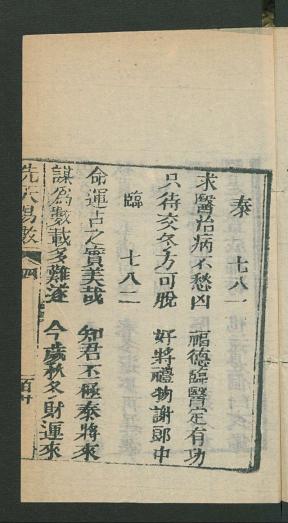 泰 七八一
求醫治病不愁凶 福德臨醫定有功
只待交冬方可脫 好將禮物謝郎中
臨 七八二
命運占之實美哉 知君否極泰將來
謀為數載多難遂 今歲秋冬財運來
先天易數 四